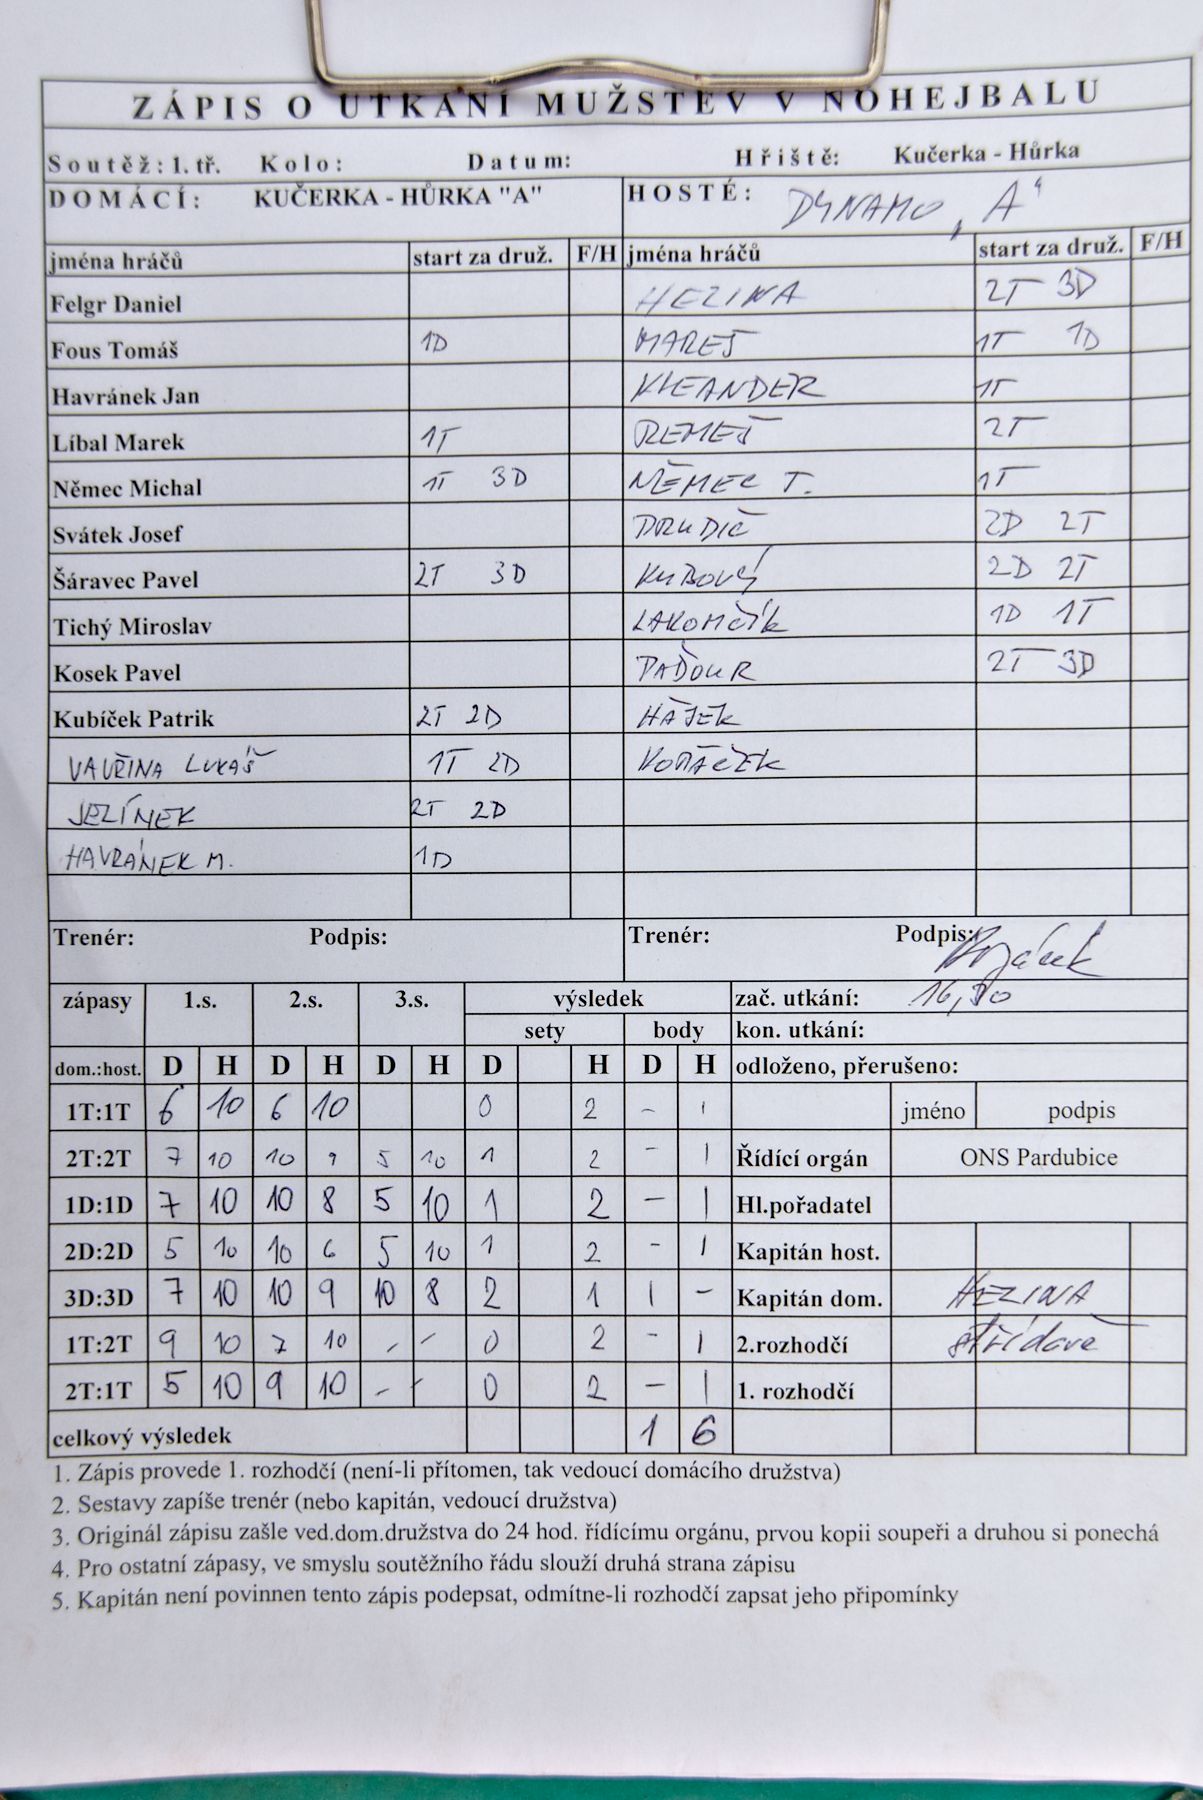 ZÁPIS O UTKÁNÍ MUŽSTEV V NOHEJBALU
Soutěž: 1. tř. Kolo: Datum: Hřiště: Kučerka - Hůrka
DOMÁCÍ: KUČERKA - HŮRKA "A" HOSTÉ: DYNAMO „A“
jména hráčů start za druž. F/H jména hráčů start za druž. F/H
Felgr Daniel HEZINA 2T 3D
Fous Tomáš 1D MAREŠ 1T 1D
Havránek Jan KLEANDER 1T
Líbal Marek 1T REMEŠ 2T
Němec Michal 1T 3D NĚMEC T. 1T
Svátek Josef DRUDIČ 2D 2T
Šáravec Pavel 2T 3D KUBOVÝ 2D 2T
Tichý Miroslav LAKOMČÍK 1D 1T
Kosek Pavel PAĎOUR 2T 3D
Kubíček Patrik 2T 2D HÁJEK
VAVŘINA LUKÁŠ 1T 2D
JELÍNEK 2T 2D
HAVRÁNEK M. 1D
Trenér: Podpis: Trenér: Podpis:
zápasy 1.s. 2.s. 3.s. výsledek zač. utkání:
sety body kon. utkání:
dom.:host. D H D H D H D H D H odloženo, přerušeno:
1T:1T 6 10 6 10 0 2 - 1 jméno podpis
2T:2T 7 10 10 9 5 10 1 2 - 1 Řídící orgán ONS Pardubice
1D:1D 7 10 10 8 5 10 1 2 - 1 Hl.pořadatel
2D:2D 5 10 10 6 5 10 1 2 - 1 Kapitán host.
3D:3D 7 10 10 9 10 8 2 1 1 - Kapitán dom. HEZINA
1T:2T 9 10 7 10 - - 0 2 - 1 2.rozhodčí střídavě
2T:1T 5 10 9 10 - - 0 2 - 1 1. rozhodčí
celkový výsledek 1 6
1. Zápis provede 1. rozhodčí (není-li přítomen, tak vedoucí domácího družstva)
2. Sestavy zapíše trenér (nebo kapitán, vedoucí družstva)
3. Originál zápisu zašle ved.dom.družstva do 24 hod. řídícímu orgánu, prvou kopii soupeři a druhou si ponechá
4. Pro ostatní zápasy, ve smyslu soutěžního řádu slouží druhá strana zápisu
5. Kapitán není povinnen tento zápis podepsat, odmítne-li rozhodčí zapsat jeho připomínky